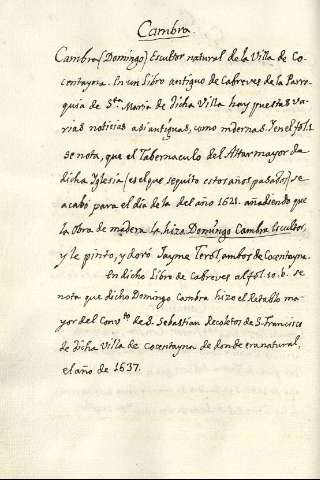 Cambra
Cambra (Domingo) Escultor natural de la Villa de Co-
centayna. En un Libro antiguo de Cabreves de la Parro-
quia de S.ta Maria de dicha Villa hay puestas va-
rias noticias asi antiguas, como mdernas. Y en el fol. 1
se nota, que el Tabernaculo del Altar mayor de
dicha Yglesia (es el que se quito estos años pasados) se
acabó para el dia de la del año 1621. añadiendo que
la obra de madera la hizo Domingo Cambra Escultor,
y le pinto, y doró Jayme Terol, ambos de Cocentayna.
En dicho Libro de Cabreves al fol. 10. b. se
nota que dicho Domingo Cambra hizo el Retablo ma-
yor del Conv.to de S. Sebastian decoletos de S. Francisco
de dicha Villa de Cocentayna de donde era natural,
el año de 1637.